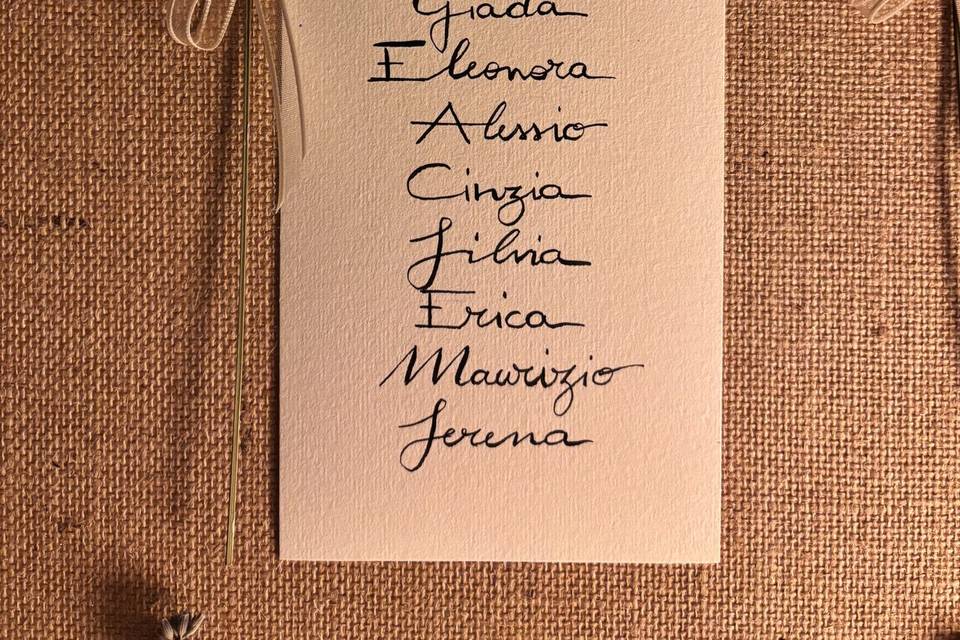 Giada
Eleonora
Alessio
Cinzia
Silvia
Erica
Maurizio
Serena